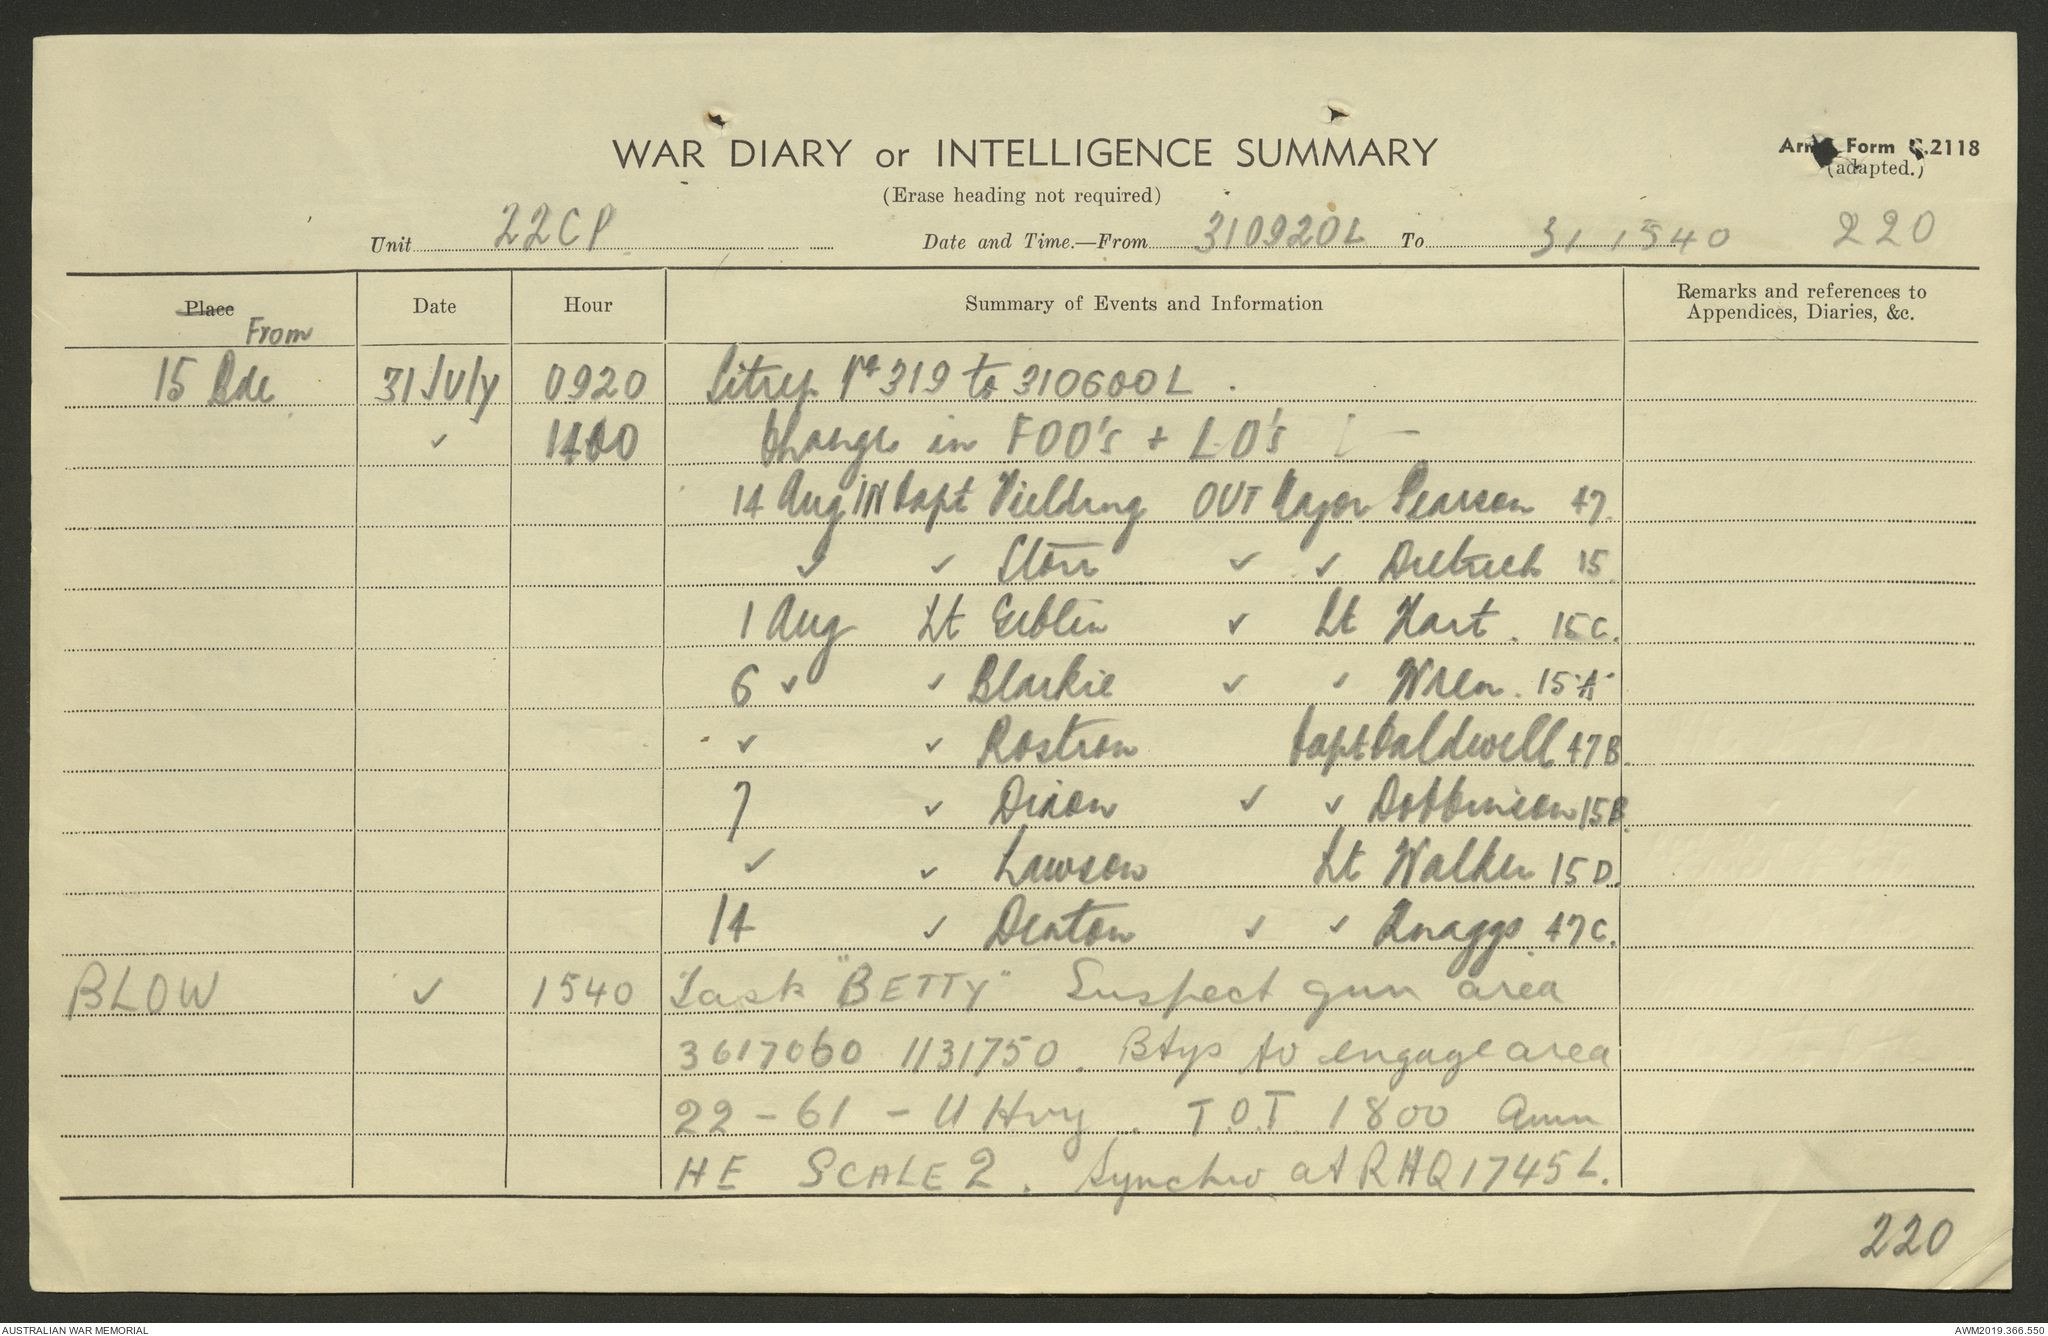 WAR DIARY or INTELLIGENCE SUMMARY
Army Form C.2118
(Erase heading not required)
(adapted.)
Unit 22CP Date and Time.—From 310920L To 311540 220
Place From Date Hour Summary of Events and Information Remarks and references to Appendices, Diaries, &c.
15 Bde 31 July 0920 Sitrep 319 to 310600L.
✓ 1400 Change in FOO's + LO's :-
14 Aug IN Capt Fielding OUT Major Pearson 47.
✓ ✓ Storr ✓ ✓ Dietrich 15
1 Aug Lt Giblin ✓ Lt Hart. 15C.
6 ✓ ✓ Blaikie ✓ ✓ Wren. 15A
✓ ✓ Rostron Capt Caldwell 47B.
7 ✓ Dixon ✓ ✓ Dobbinson 15B.
✓ ✓ Lawson Lt Walker 15D.
14 ✓ Denton ✓ ✓ Knaggs. 47C.
BLOW ✓ 1540 Task "BETTY" Suspect gun area
3617060 1131750. Btys to engage area
22 - 61 - U Hvy. T.O.T. 1800 Amn
HE SCALE 2. Synchro at RHQ 1745L.
220
AUSTRALIAN WAR MEMORIAL
AWM2019.366.550